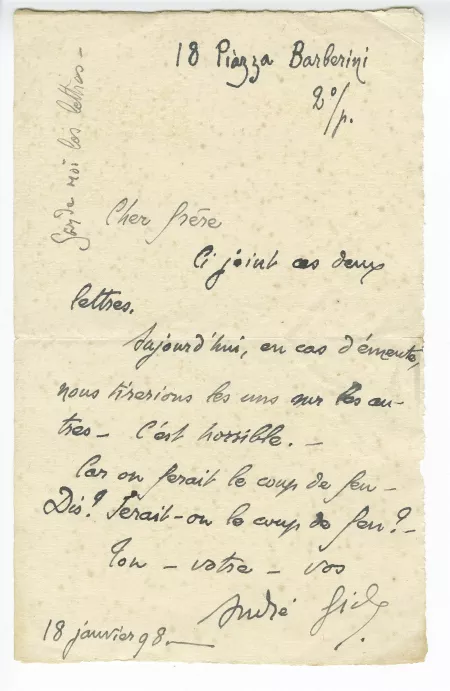 18 Piazza Barberini
2º/p.
Garde moi les lettres -
Cher frère
Ci joint ces deux
lettres.
Aujourd'hui, en cas d'émeute,
nous tirerions les uns sur les au-
tres - C'est horrible. -
Car on ferait le coup de feu -
Dis? Ferait-on le coup de feu? -
Ton - votre - vos
André Gide
18 janvier 98. -